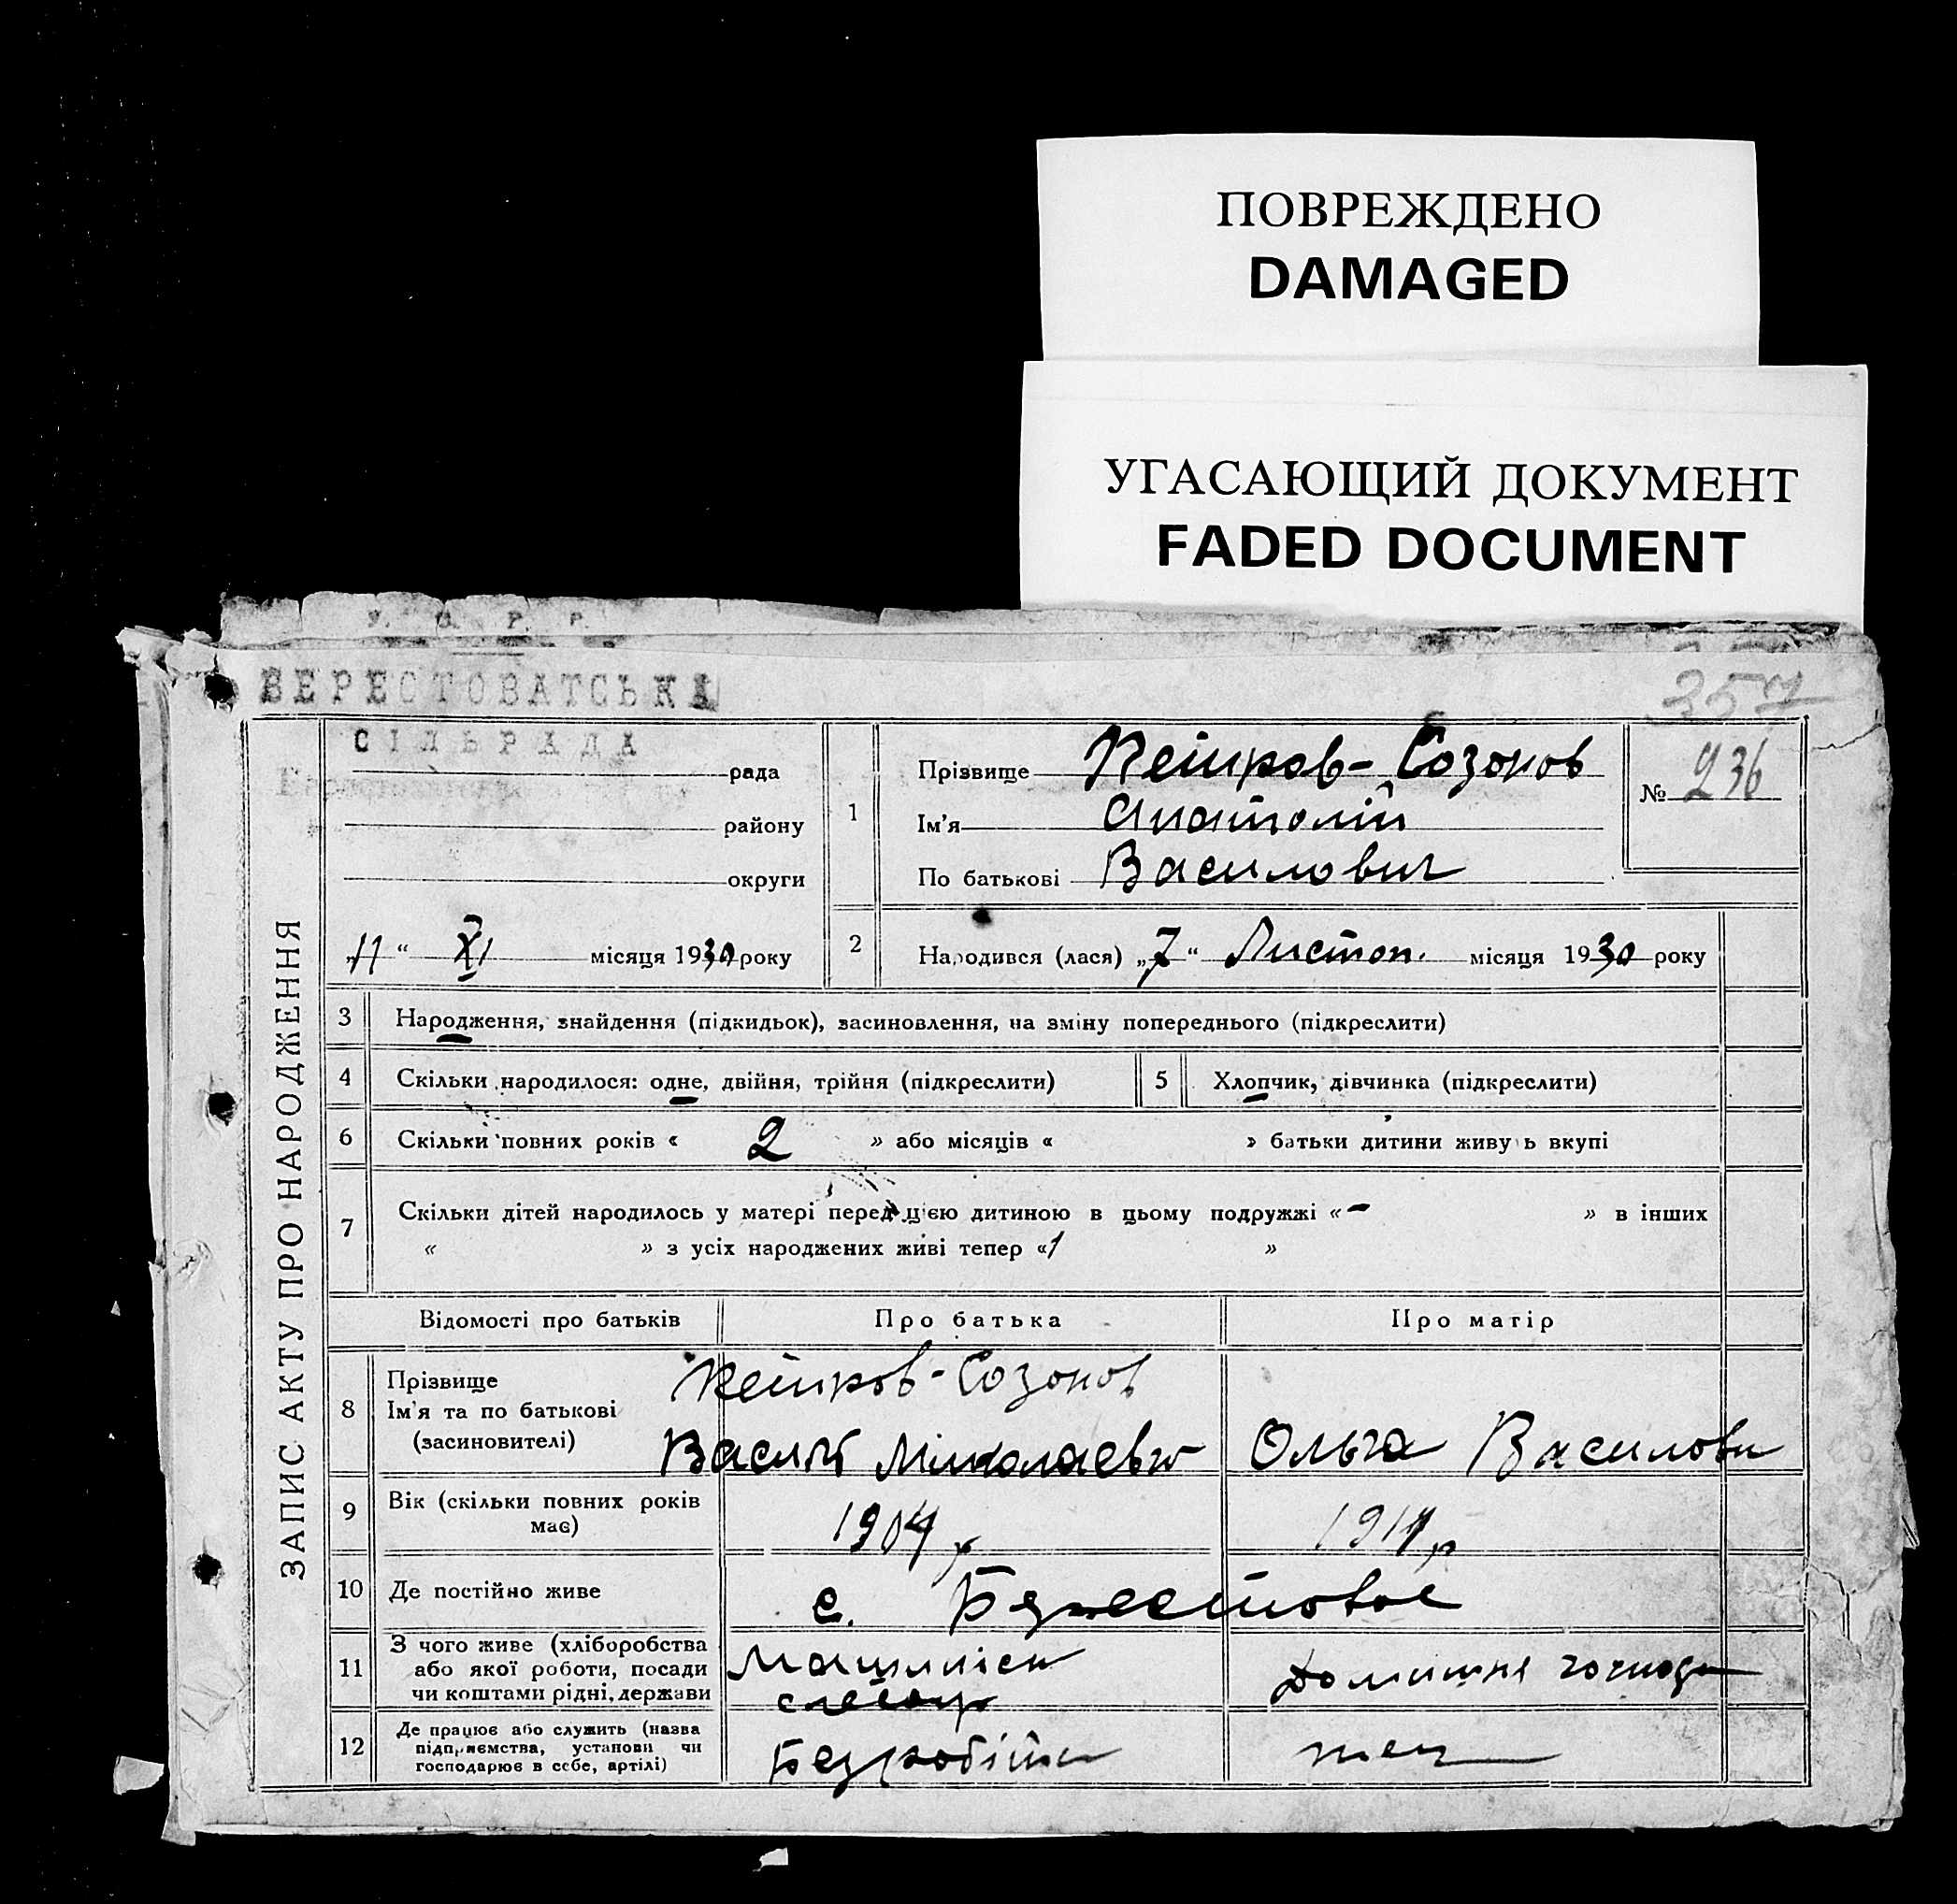 ПОВРЕЖДЕНО
DAMAGED
УГАСАЮЩИЙ ДОКУМЕНТ
FADED DOCUMENT
У. С. Р. Р.
БЕРЕСТОВАТСЬКА
357
СІЛЬРАДА
рада
району
округи
„11“ XI місяця 1930 року
ЗАПИС АКТУ ПРО НАРОДЖЕННЯ
1 Прізвище Петров-Созонов
Ім'я Анатолій
По батькові Василович
№ 236
2 Народився (лася) „7“ Листоп. місяця 1930 року
3 Народження, знайдення (підкидьок), засиновлення, на зміну попереднього (підкреслити)
4 Скільки народилося: одне, двійня, трійня (підкреслити) 5 Хлопчик, дівчинка (підкреслити)
6 Скільки повних років « 2 » або місяців « » батьки дитини живуть вкупі
7 Скільки дітей народилось у матері перед цією дитиною в цьому подружжі «-» в інших
« » з усіх народжених живі тепер «1 »
Відомості про батьків Про батька Про матір
8 Прізвище
Ім'я та по батькові
(засиновителі)
Петров-Созонов
Василій Миколаевич Ольга Василовн
9 Вік (скільки повних років
має)
1904 р 1911 р
10 Де постійно живе с. Берестовое
11 З чого живе (хліборобства
або якої роботи, посади
чи коштами рідні, держави
Машиніст
слесарь
Домашня господ
12 Де працює або служить (назва
підприємства, установи чи
господарює в себе, артілі)
Безробітн